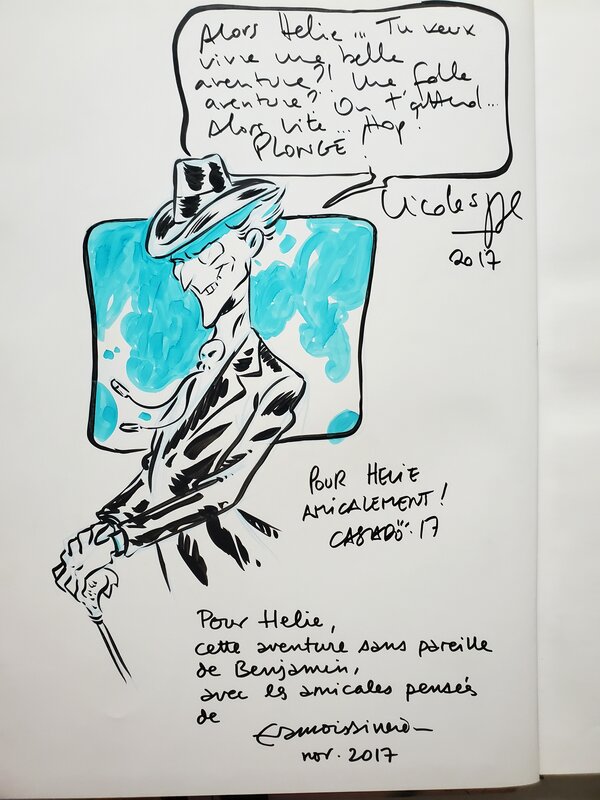 Alors Helie... Tu veux
vivre une belle
aventure?! Une folle
aventure? On t'attend...
Alors vite... Hop!
PLONGE!
Nicolas
2017
POUR HELIE
AMICALEMENT!
CASADO. 17
Pour Helie,
cette aventure sans pareille
de Benjamin,
avec les amicales pensées
de
nov. 2017